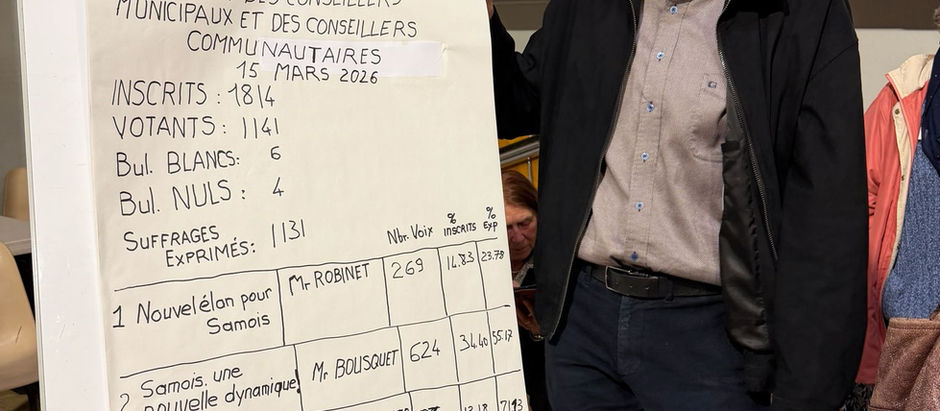 DES CONSEILLERS
MUNICIPAUX ET DES CONSEILLERS
COMMUNAUTAIRES
15 MARS 2026
INSCRITS : 1814
VOTANTS : 1141
Bul. BLANCS : 6
Bul. NULS : 4
SUFFRAGES
EXPRIMÉS : 1131
Nbr. Voix % INSCRITS % Exp
1 Nouvel élan pour Samois Mr ROBINET 269 14.83 23.78
2 Samois, une nouvelle dynamique! Mr BOUSQUET 624 34.40 55.17